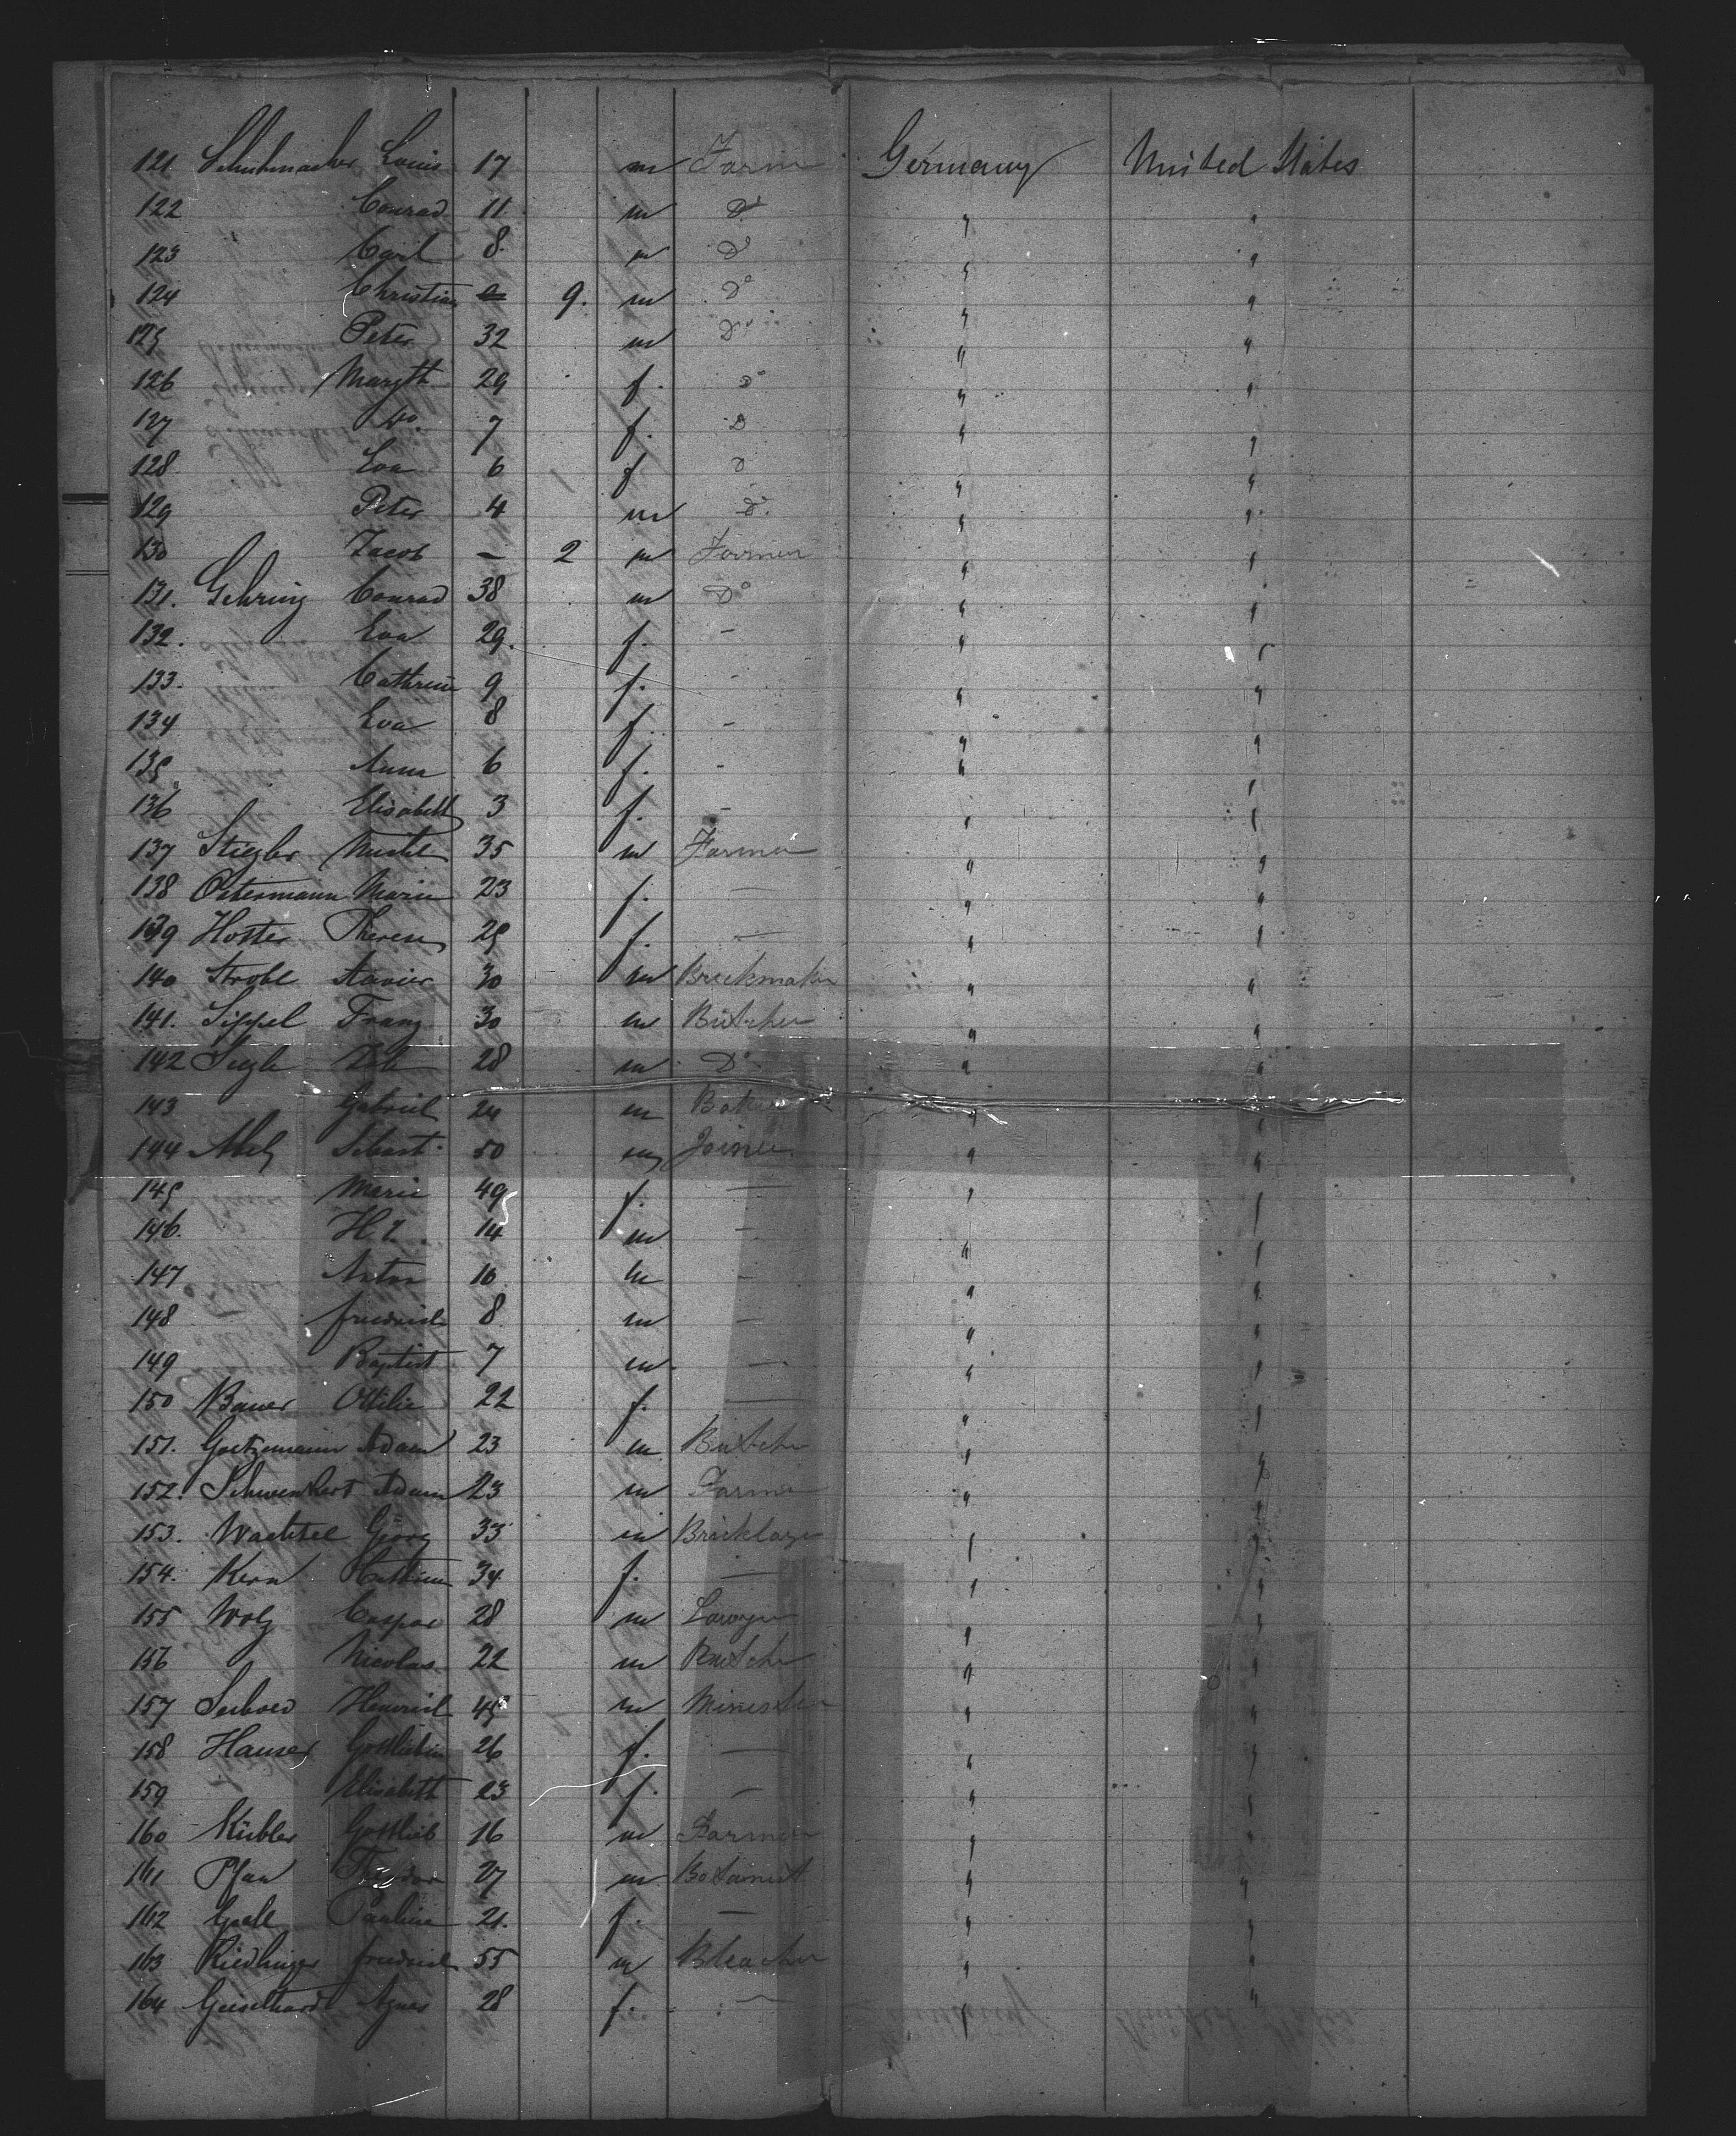 121. Schuhmacher Louis 17 m Farm Germany United States
122 Conrad 11 m Do " "
123 Carl 8. m Do " "
124 Christian 9. m Do " "
125 Peter 32 m Do " "
126 Margth 29 f. Do " "
127 do. 7 f. D " "
128 Eva 6 f D " "
129 Peter 4 m Do. " "
130 Jacob — 2 m Farmer " "
131. Gehring Conrad 38 m Do " "
132. Eva 29. f. - " "
133. Cathrine 9 f. - " "
134 Eva 8 f. - " "
135 Anna 6 f. - " "
136 Elisabeth 3 f. - " "
137 Stiegler Michl 35 m Farmer " "
138 Ostermann Marie 23 f. — " "
139 Hoster Therese 25 f. — " "
140 Strobl Xavier 30 m Brickmaker " "
141. Sippel Franz 30 m Butcher " "
142 28 m Do - " "
143 Gabriel 24 m Baker " "
144 Abel Sebast. 50 m Joiner " "
145 Marie 49 f. — " "
146. 14 m - " "
147 Anton 10 m - " "
148 Friedrich 8 m — " "
149 Baptist 7 m. — " "
150 Bauer Ottilie 22 f. — " "
151. Goetzmann Adam 23 m Butcher " "
152. Schwenkert Adam 23 m Farmer " "
153. Wachtel Georg 33 m Bricklayer " "
154. Kern 34 f. — " "
155 Wolz Caspar 28 m Lawyer " "
156 Nicolaus 22 m Butcher " "
157 Heinrich 45 m Minister " "
158 Hauser Gottliebin 26 f. — " "
159 Elisabeth 23 f. — " "
160 Kübler Gottlieb 16 m Farmer " "
161 Pfau 27 m Botanist " "
162 Pauline 21. f. — " "
163 Riedlinger Friedrich 55 m Bleacher " "
164 Geiselhardt Agnes 28 f. - — " "